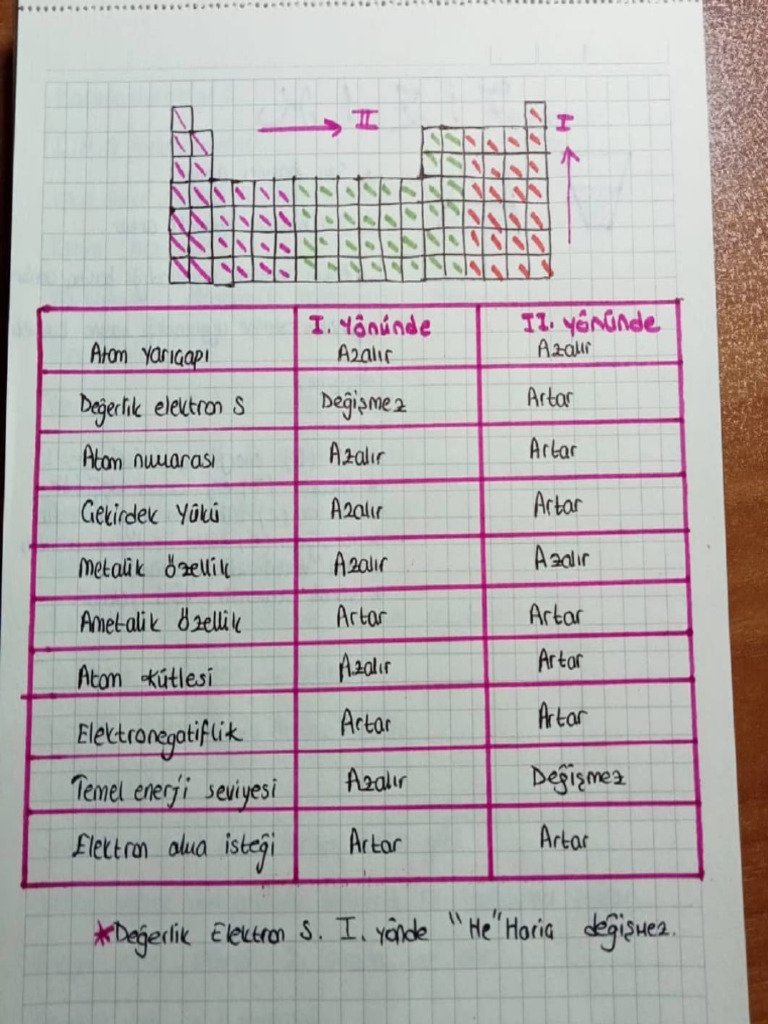 II
I
I. yönünde II. yönünde
Atom yarıçapı Azalır Azalır
Değerlik elektron S Değişmez Artar
Atom numarası Azalır Artar
Çekirdek yükü Azalır Artar
Metalik özellik Azalır Azalır
Ametalik özellik Artar Artar
Atom kütlesi Azalır Artar
Elektronegatiflik Artar Artar
Temel enerji seviyesi Azalır Değişmez
Elektron alma isteği Artar Artar
*Değerlik Elektron S. I. yönde "He" Hariç değişmez.